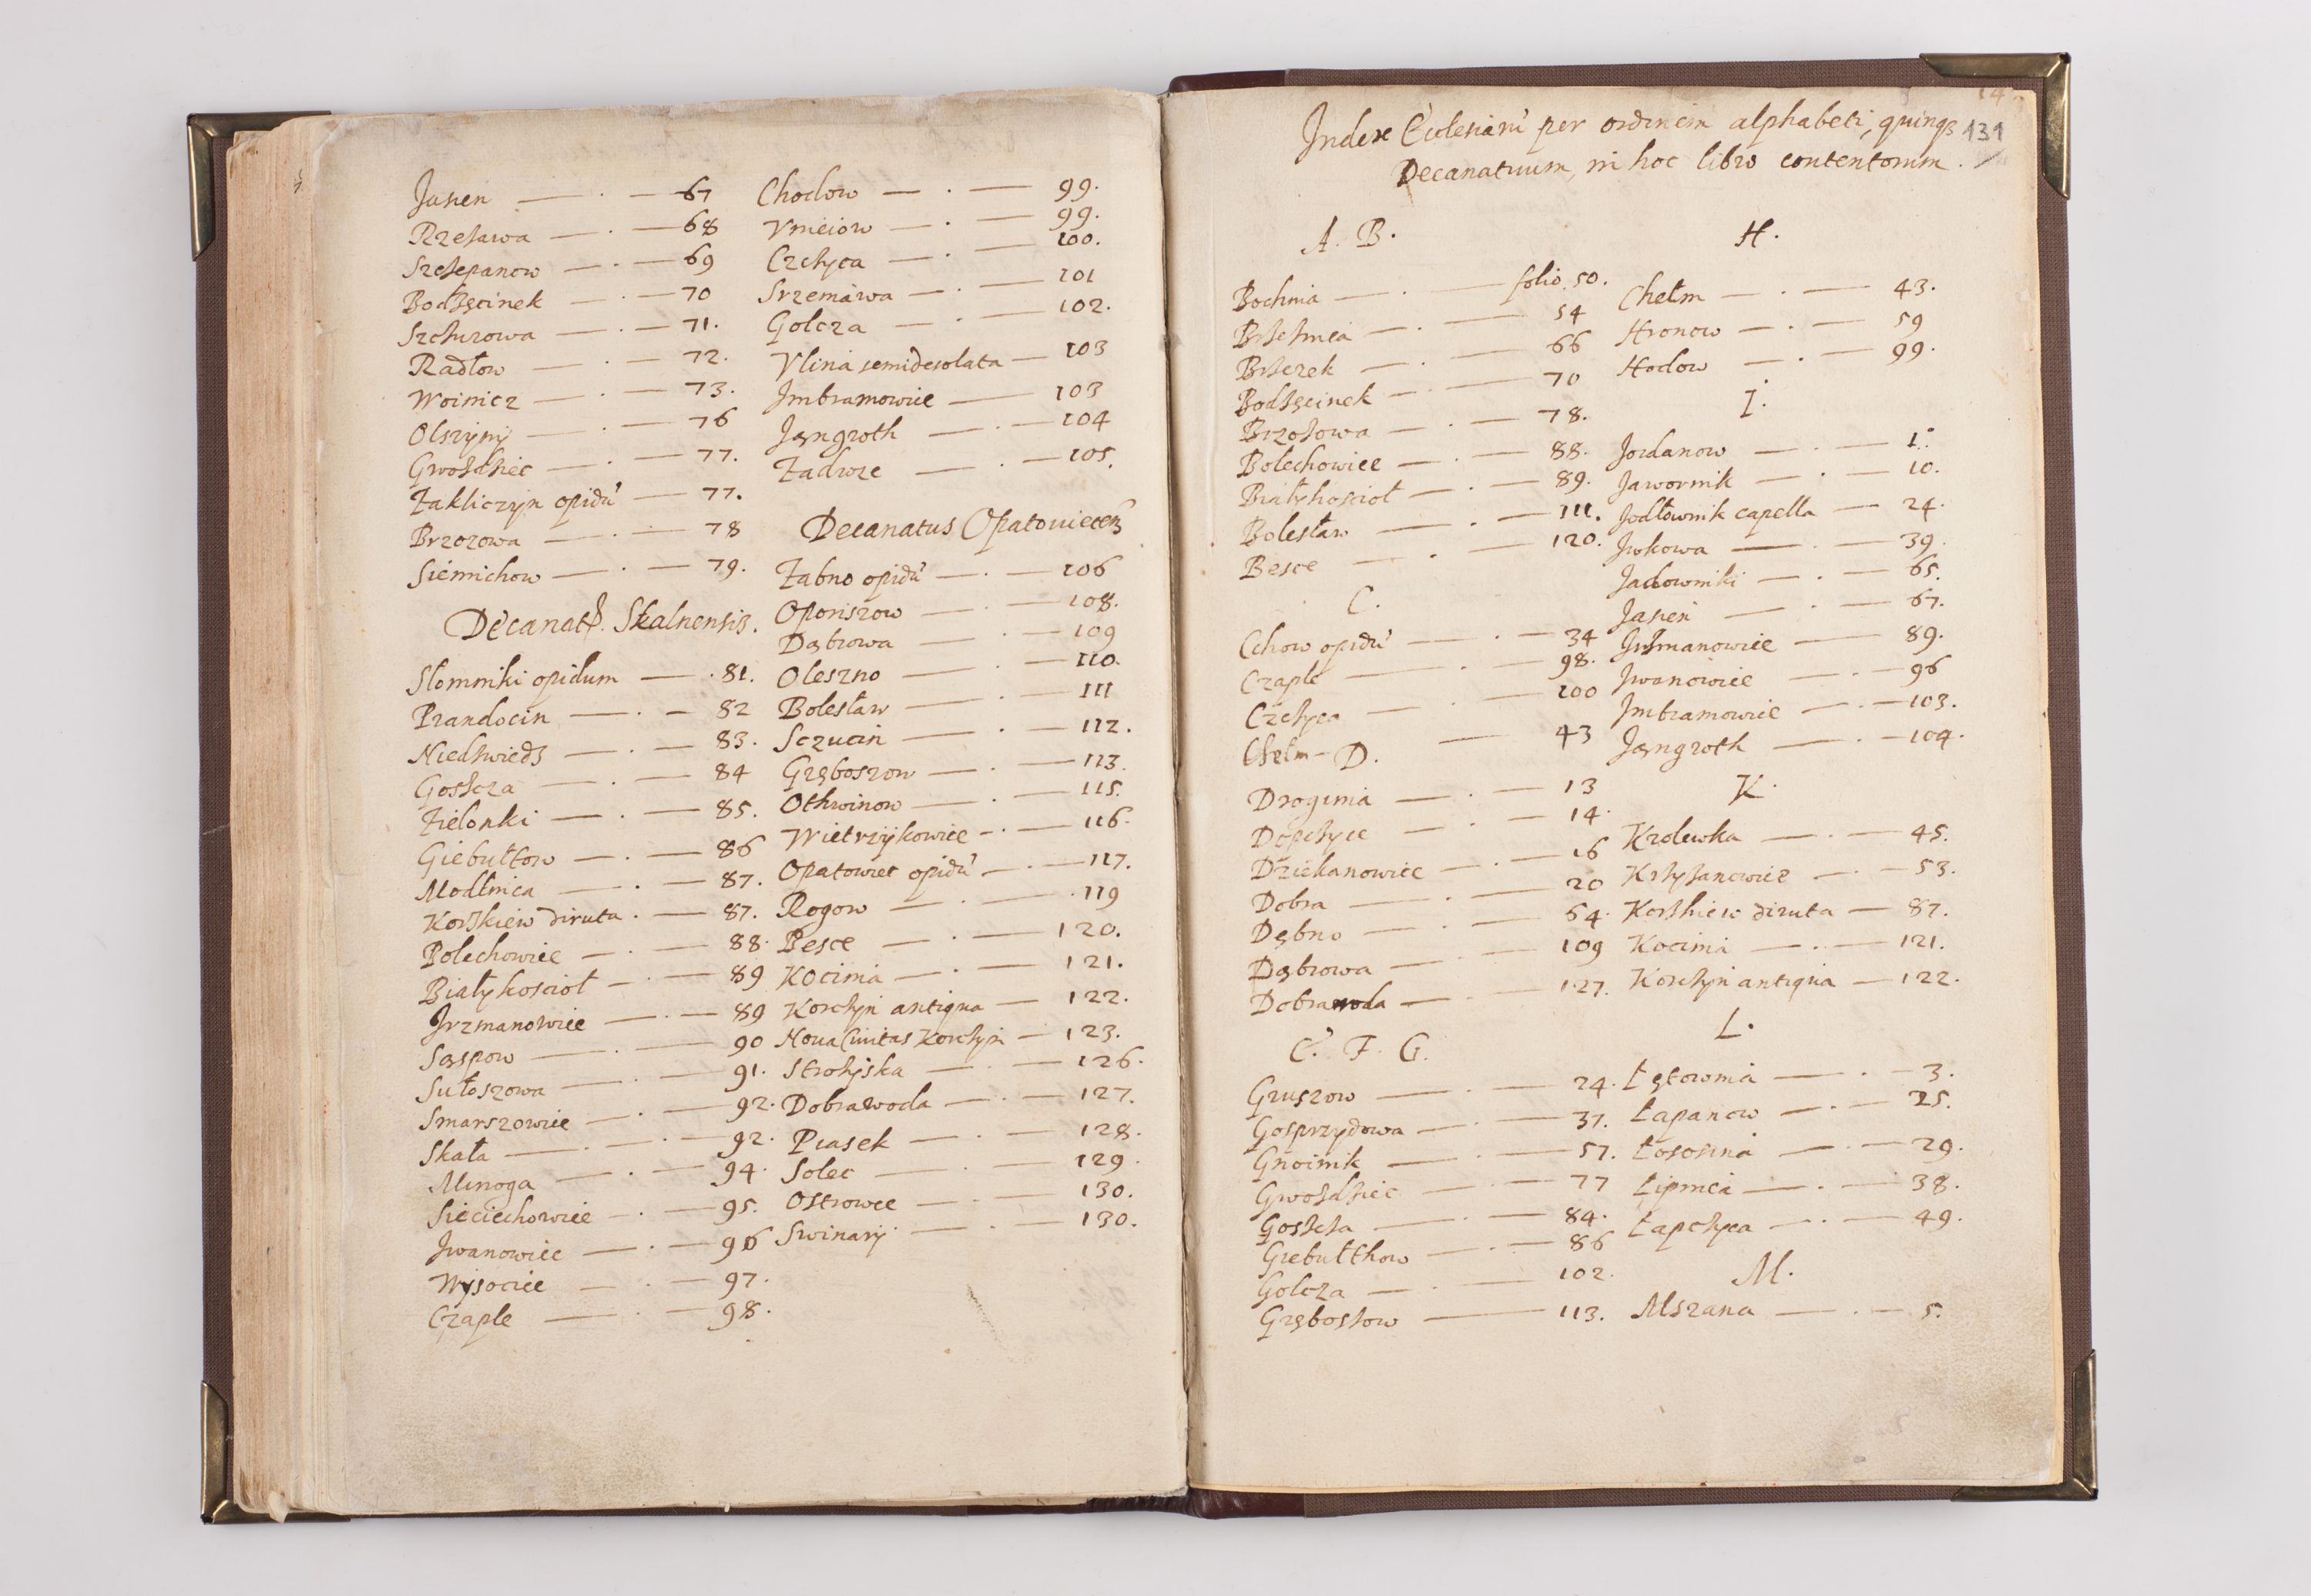 Jasień — . — 67
Rzezawa — . — 68
Szczepanow — . — 69
Bodzęcinek — . — 70
Szczurowa — . — 71.
Radłow — . — 72.
Woinicz — . — 73.
Olszyny — . — 76
Gwoździec — . — 77.
Zakliczyn opidu — 77.
Brzozowa — . — 78
Siemichow — . — 79.
Decanat9. Skalnensis.
Słomniki opidum — . 81.
Prandocin — . — 82
Niedzwiedz — . — 83.
Goszcza — . — 84
Zielonki — . — 85.
Giebułtow — . — 86
Modlnica — . — 87.
Korzkiew diruta . — 87.
Bolechowice — . — 88.
Białykoscioł — . — 89
Jrzmanowice — . — 89
Sąspow — . — 90
Sułoszowa — . — 91.
Smarszowice — . — 92.
Skała — . — 92.
Minoga — . — 94.
Sieciechowice — . — 95.
Jwanowice — . — 96
Wysocice — . — 97.
Czaple — . — 98.
Chodow — . — 99.
Vnieiow — . — 99.
Czchyca — . — 100.
Srzeniawa — . — 101
Golcza — . — 102.
Vlina semidesolata — 103
Jmbramowice — 103
Jąngroth — . — 104
Zadroze — . — 105.
Decanatus Opatouiecen
Zabno opidu — . — 106
Oponszow — . — 108.
Dąbrowa — . — 109
Oleszno — . — 110.
Bolesław — . — 111
Sczucin — . — 112.
Gręboszow — . — 113.
Othwinow — . — 115.
Wietrzykowice — . — 116.
Opatowiec opidu — . — 117.
Rogow — . — 119
Besce — . — 120.
Kocinia — . — 121.
Korczyn antiqua — 122.
Noua Ciuitas Korczyn — 123.
Strozyska — . — 126.
Dobrawoda — . — 127.
Piasek — . — 128.
Solec — . — 129.
Ostrowce — . — 130.
Swinary — . — 130.
131
Jndex Ecclesiaru per ordinem alphabeti, quinqз
Decanatuum, in hoc libro contentorum.
A. B.
Bochnia — . — folio. 50.
Brzeznica — . — 54
Brzezek — . — 66
Bodzęcinek — . — 70
Brzozowa — . — 78.
Bolechowice — . — 88.
Białykoscioł — . — 89.
Bolesław — . — 111.
Besce — . — 120.
C.
Cchow opidu — . — 34
Czaple — . — 98.
Czchyca — . — 100
Chełm — 43
D.
Droginia — . — 13
Dopczyce — . — 14.
Dziekanowice — . — 16
Dobra — . — 20
Dębno — . — 64.
Dąbrowa — . — 109
Dobrawoda — . — 127.
E. F. G.
Gruszow — . — 24.
Gosprzydowa — . — 37.
Gnoinik — . — 57.
Gwozdziec — . — 77
Goszcza — . — 84.
Giebułthow — . — 86
Golcza — . — 102.
Grębossow — 113.
H.
Chełm — . — 43.
Hronow — . — 59
Hodow — . — 99.
I.
Jordanow — . — 1.
Jawornik — . — 10.
Jodłownik capella — 24.
Jwkowa — . — 39.
Jadowniki — . — 65.
Jasień — . — 67.
Jrzmanowice — 89.
Jwanowice — . — 96
Jmbramowice — . — 103.
Jąngroth — . — 104.
K.
Krolewka — . — 45.
Krzyzanowice — . — 53.
Korzkiew diruta — 87.
Kocinia — . — 121.
Korczyn antiqua — 122.
L.
Łętownia — . — 3.
Łapanow — . — 25.
Łososina — . — 29.
Lipnica — . — 38.
Łapczyca — . — 49.
M.
Mszana — . — 5.